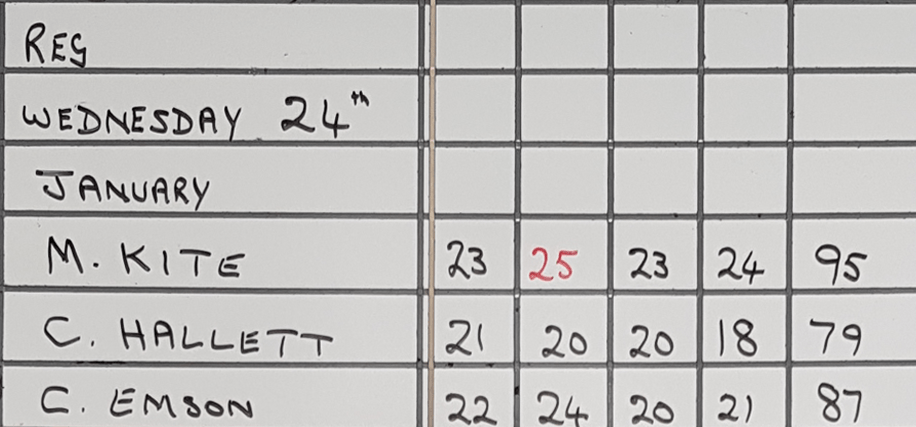 REG
WEDNESDAY 24th
JANUARY
M. KITE 23 25 23 24 95
C. HALLETT 21 20 20 18 79
C. EMSON 22 24 20 21 87